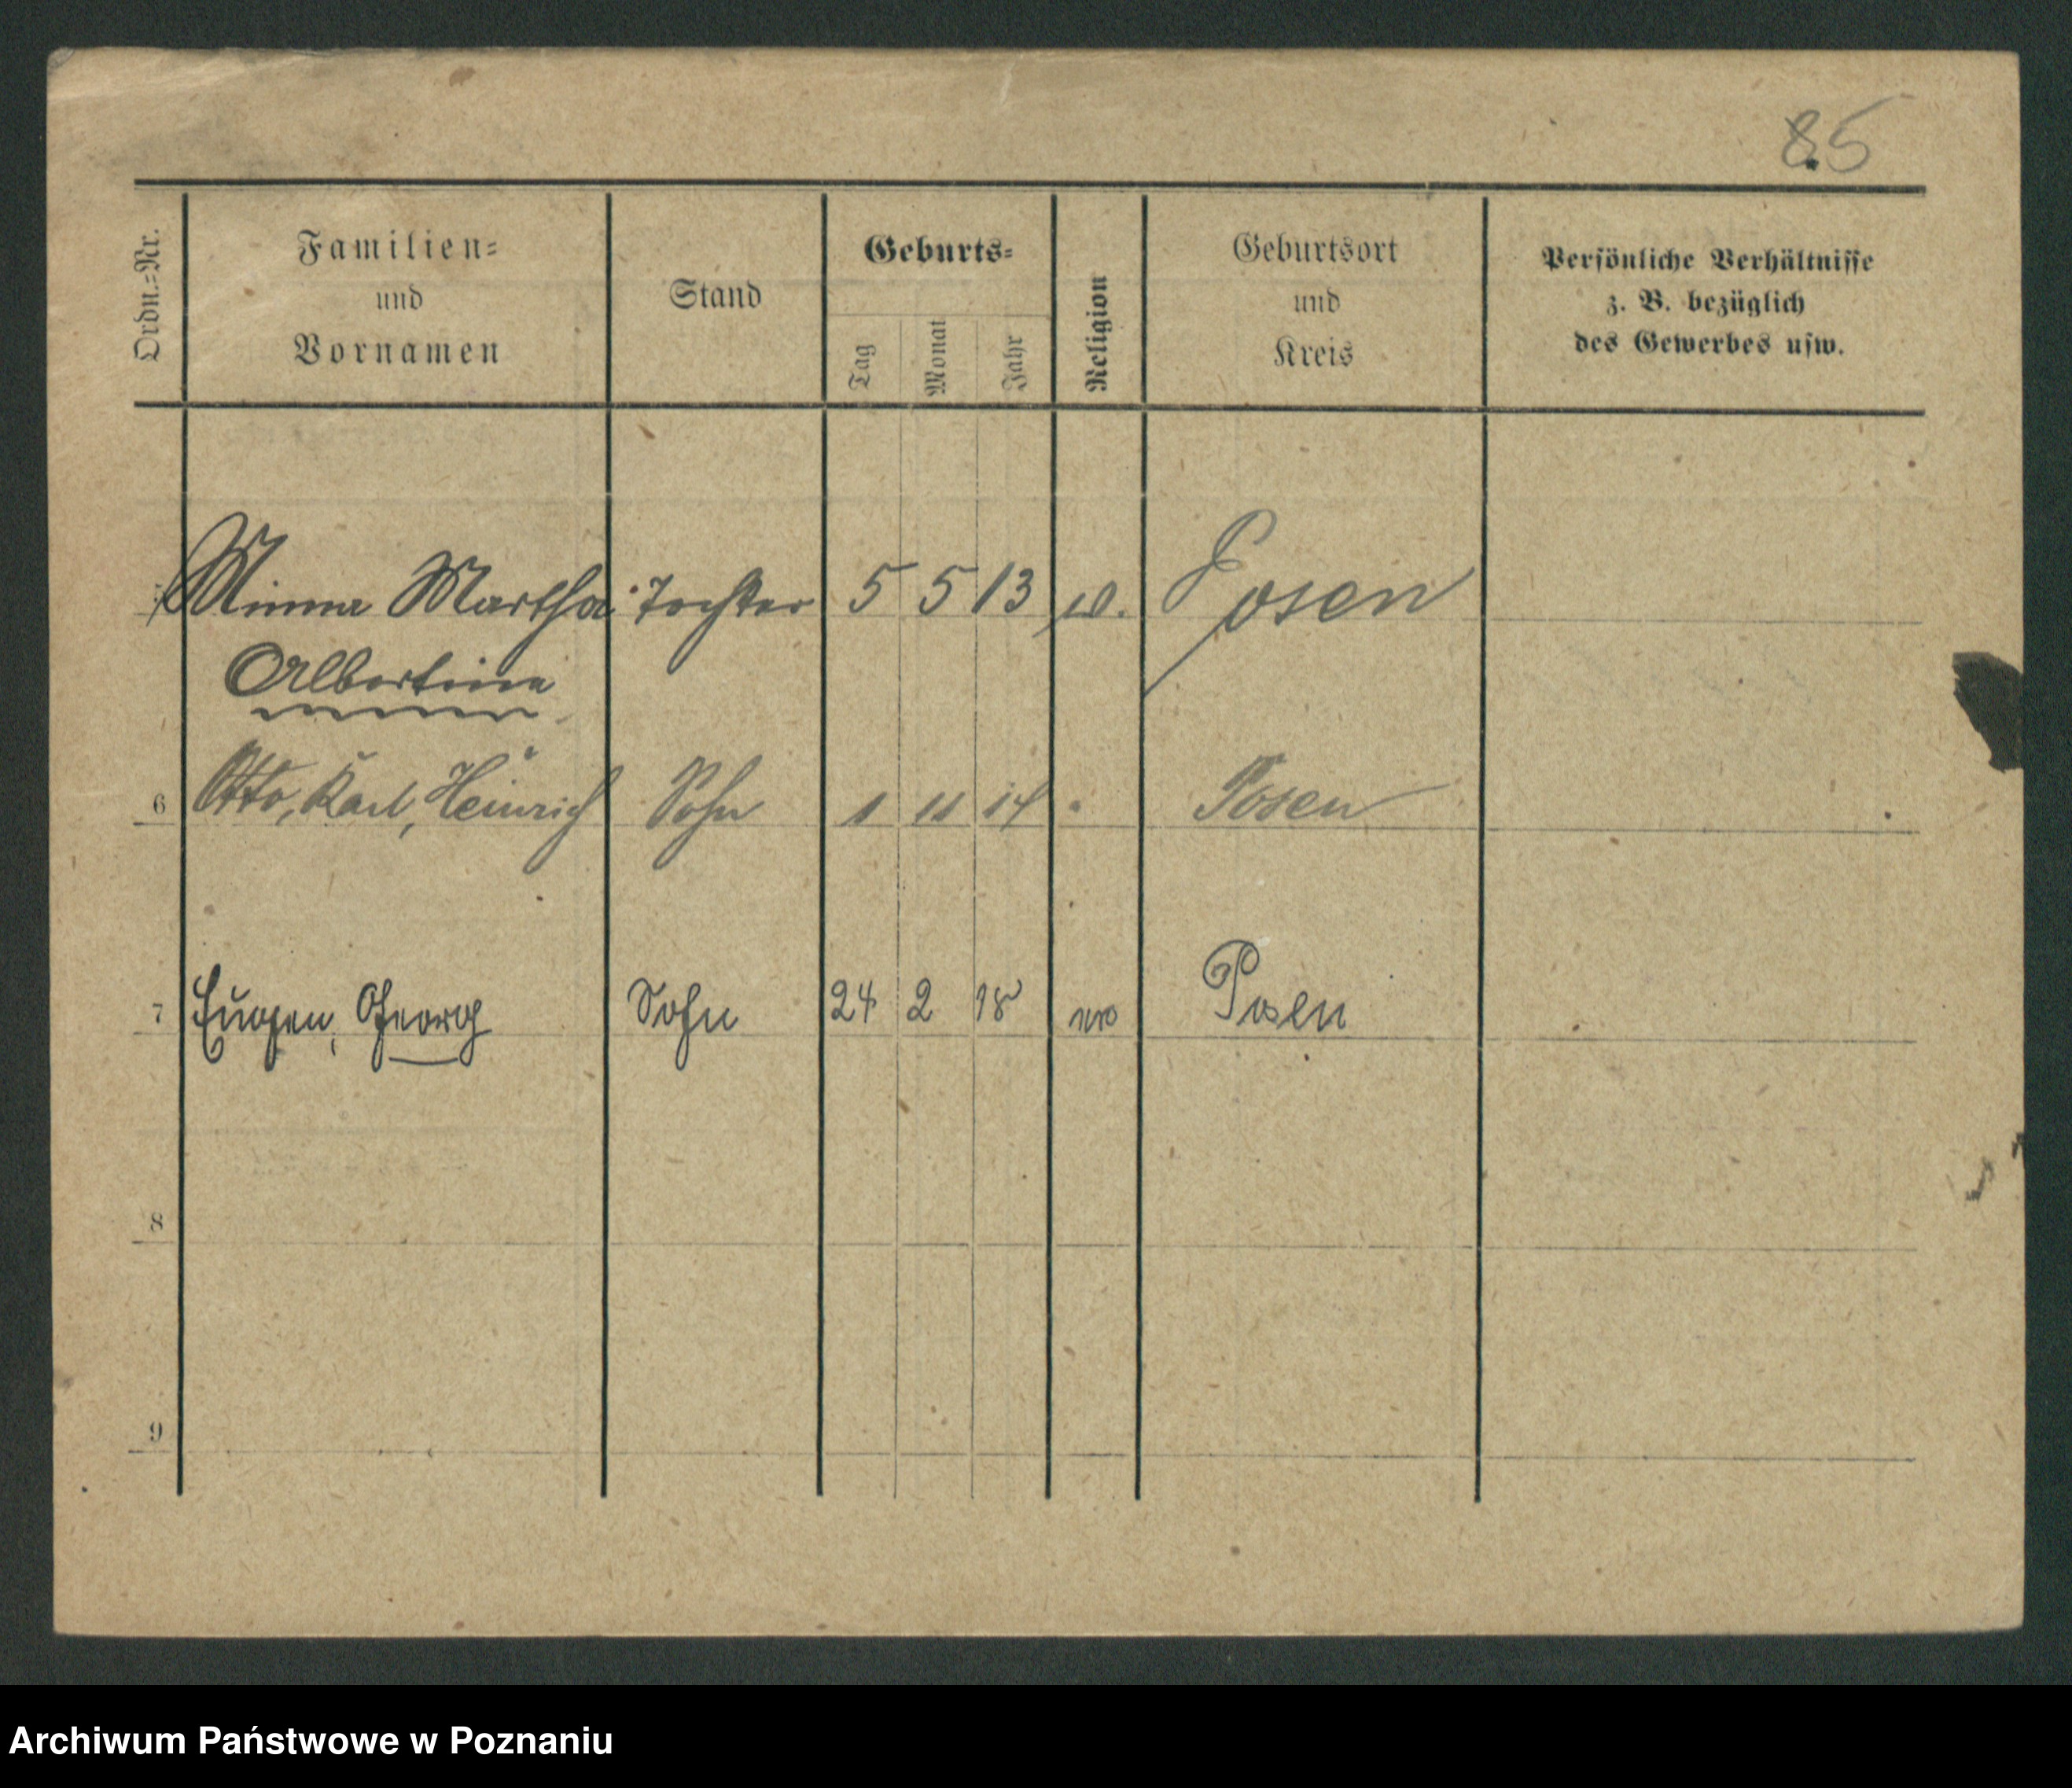 85
Ordn.=Nr.
Familien=
und
Vornamen
Stand
Geburts=
Tag
Monat
Jahr
Religion
Geburtsort
und
Kreis
Persönliche Verhältnisse
z. B. bezüglich
des Gewerbes usw.
Minna Martha Tochter 5 5 13 Posen
Albertine
6 Otto, Karl, Heinrich Sohn 1 11 14 " Posen
7 Eugen, Georg Sohn 24 2 18 Posen
8
9
Archiwum Państwowe w Poznaniu